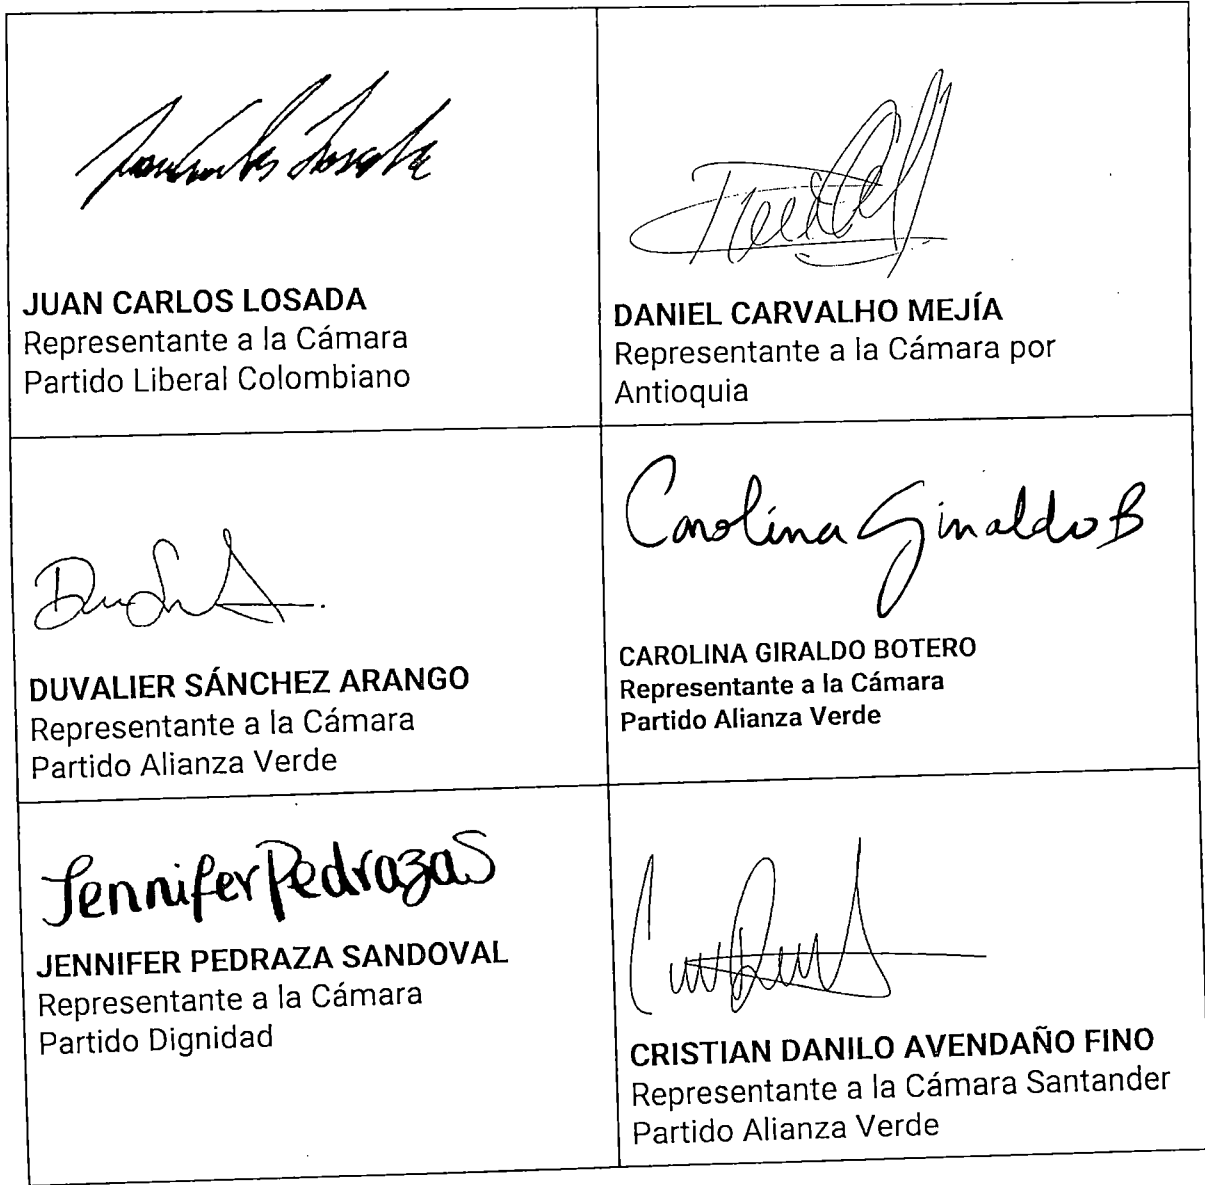 Juan Carlos Losada
JUAN CARLOS LOSADA
Representante a la Cámara
Partido Liberal Colombiano
DANIEL CARVALHO MEJÍA
Representante a la Cámara por
Antioquia
DUVALIER SÁNCHEZ ARANGO
Representante a la Cámara
Partido Alianza Verde
Carolina Giraldo B
CAROLINA GIRALDO BOTERO
Representante a la Cámara
Partido Alianza Verde
Jennifer Pedraza S
JENNIFER PEDRAZA SANDOVAL
Representante a la Cámara
Partido Dignidad
CRISTIAN DANILO AVENDAÑO FINO
Representante a la Cámara Santander
Partido Alianza Verde